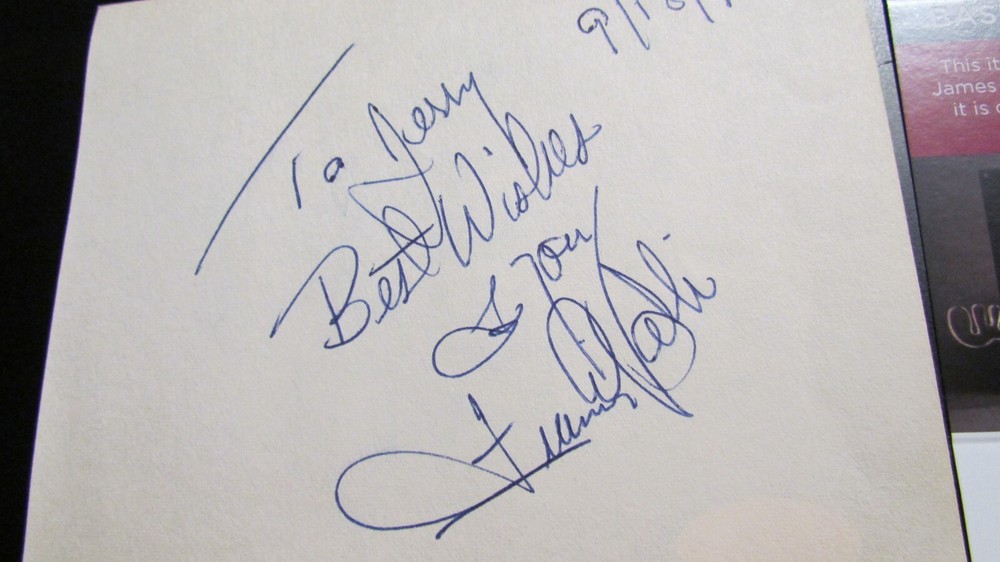 9/18/
To Jerry
Best Wishes
to you
Frankie Valli
BAS
This it
James
it is c